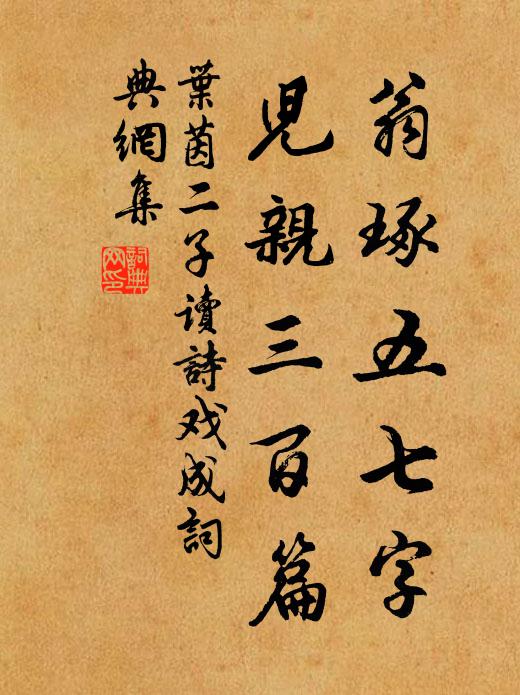 翁琢五七字
兒親三百篇
葉茵二子讀詩戏成詞
典網集
詞典
网印